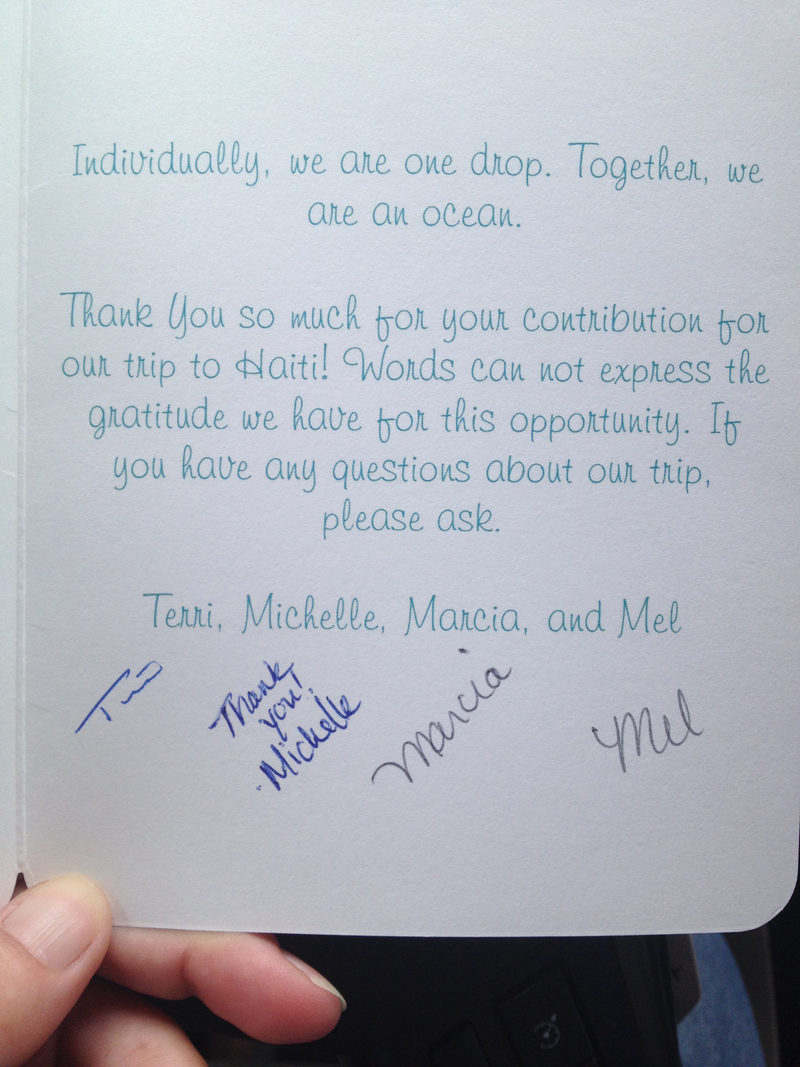 Individually, we are one drop. Together, we
are an ocean.
Thank You so much for your contribution for
our trip to Haiti! Words can not express the
gratitude we have for this opportunity. If
you have any questions about our trip,
please ask.
Terri, Michelle, Marcia, and Mel
Terri
Thank
you!
Michelle
Marcia
Mel